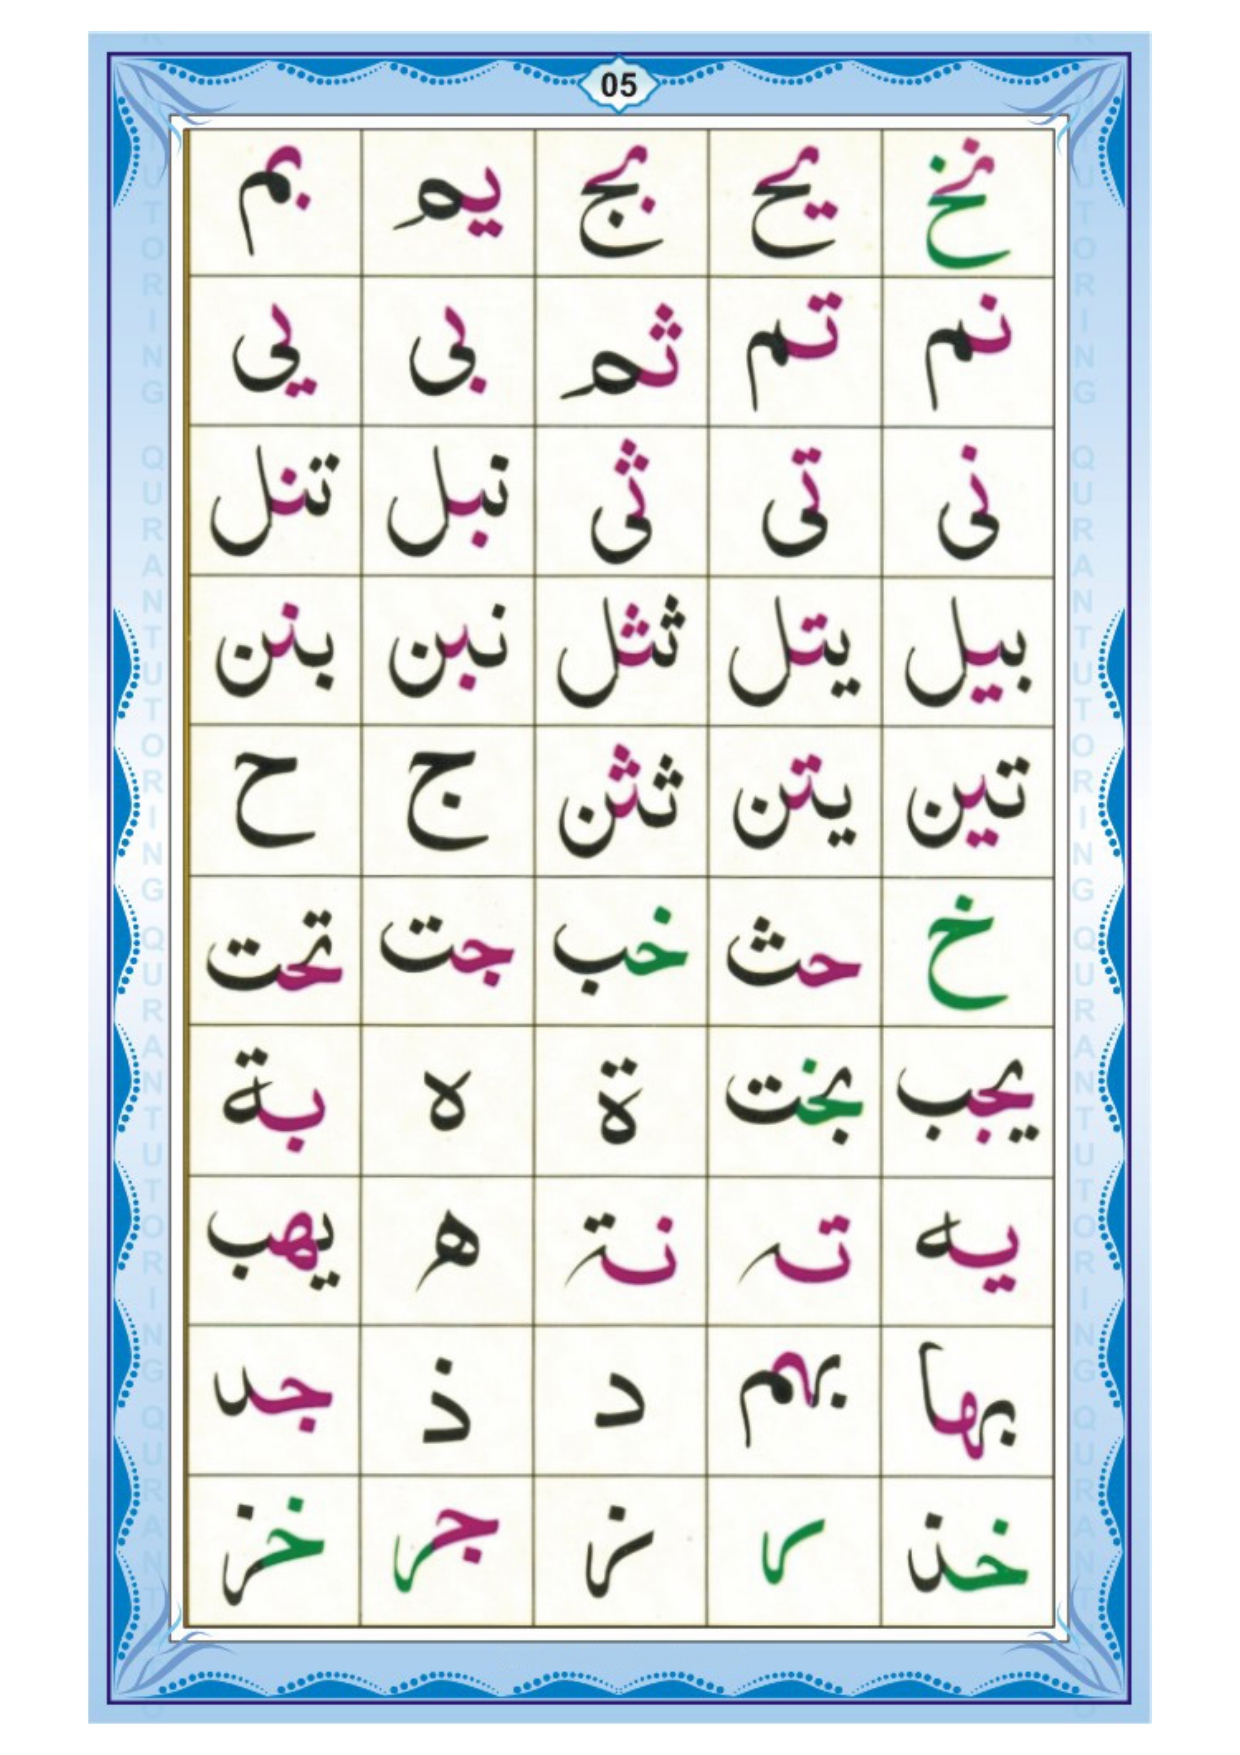 05
نخ يح بج يم بم
نم تم ثم بى يى
نى تى ثى نبل تنل
بيل يتل ثثل نبن بنن
تين يتن ثثن ج ح
خ حث خب جت تحت
يجب بخت ة ه بة
يه ته نة ه يهب
بها بهم د ذ جد
خذ ر ز جر خز
QURANTUTORING QURANTUTORING QURANTUTORING
QURANTUTORING QURANTUTORING QURANTUTORING